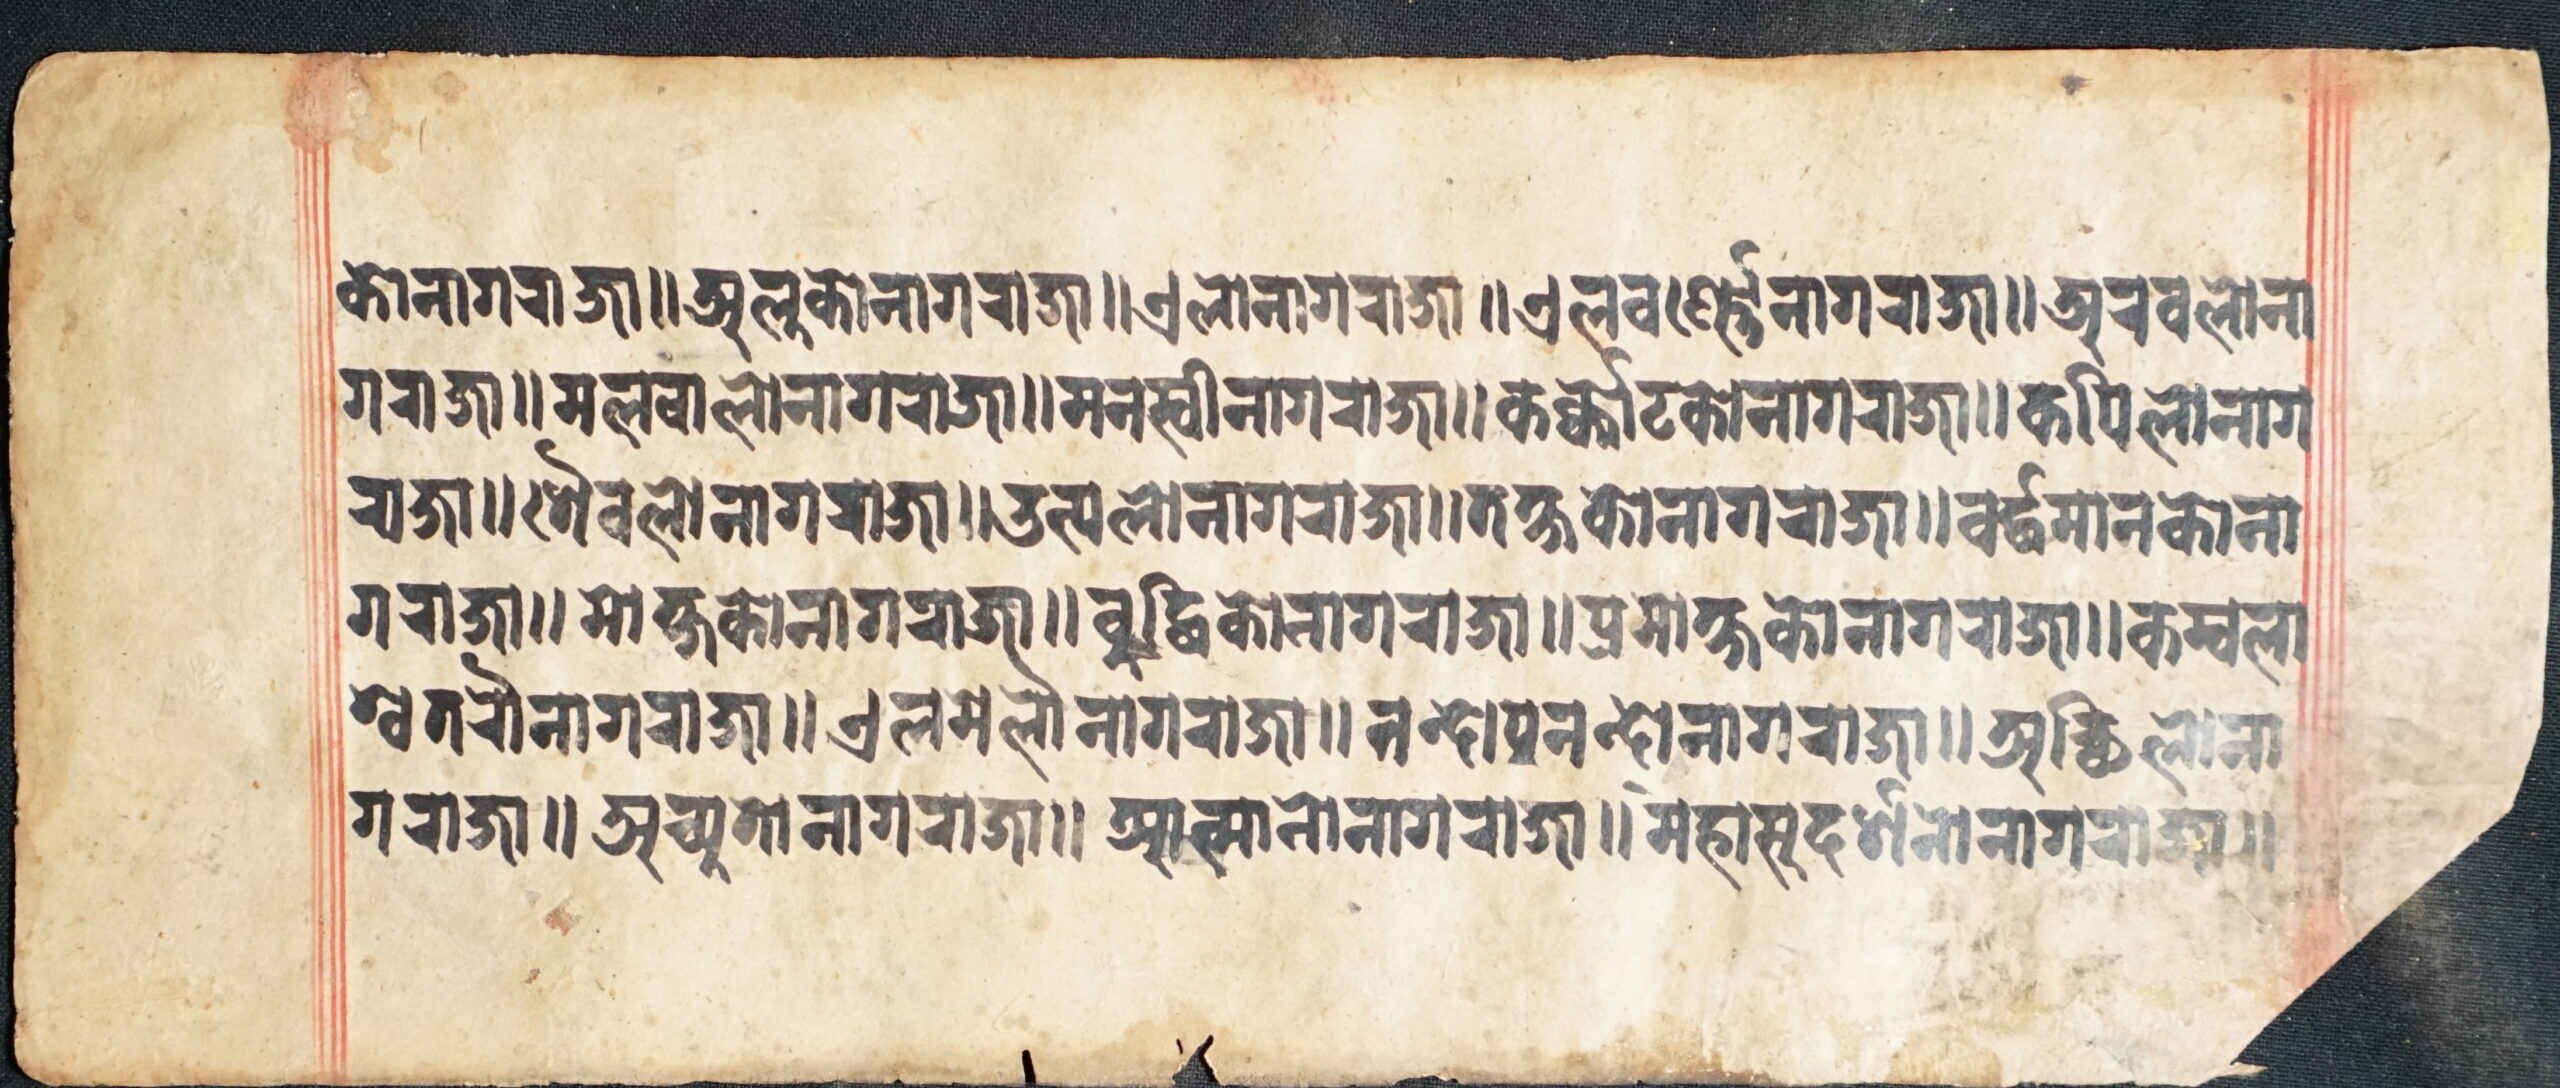 कोनागराजा॥अलुकोनागराजा॥एलोनागराजा॥एलवर्ण्णोनागराजा॥अरवलोना
गराजा॥मलवालोनागराजा॥मनस्वीनागराजा॥कर्क्कोटकोनागराजा॥कपिलोनाग
राजा॥शैवलोनागराजा॥उत्पलोनागराजा॥तक्षकोनागराजा॥वर्द्धमानकोना
गराजा॥मोक्षकोनागराजा॥बुद्धिकोनागराजा॥प्रमोक्षकोनागराजा॥कम्बला
श्वतरौनागराजा॥एलमेलौनागराजा॥नन्दोपनन्दोनागराजा॥अच्छिलोना
गराजा॥अच्युतोनागराजा॥आत्मानोनागराजा॥महासुदर्शनोनागराजा॥